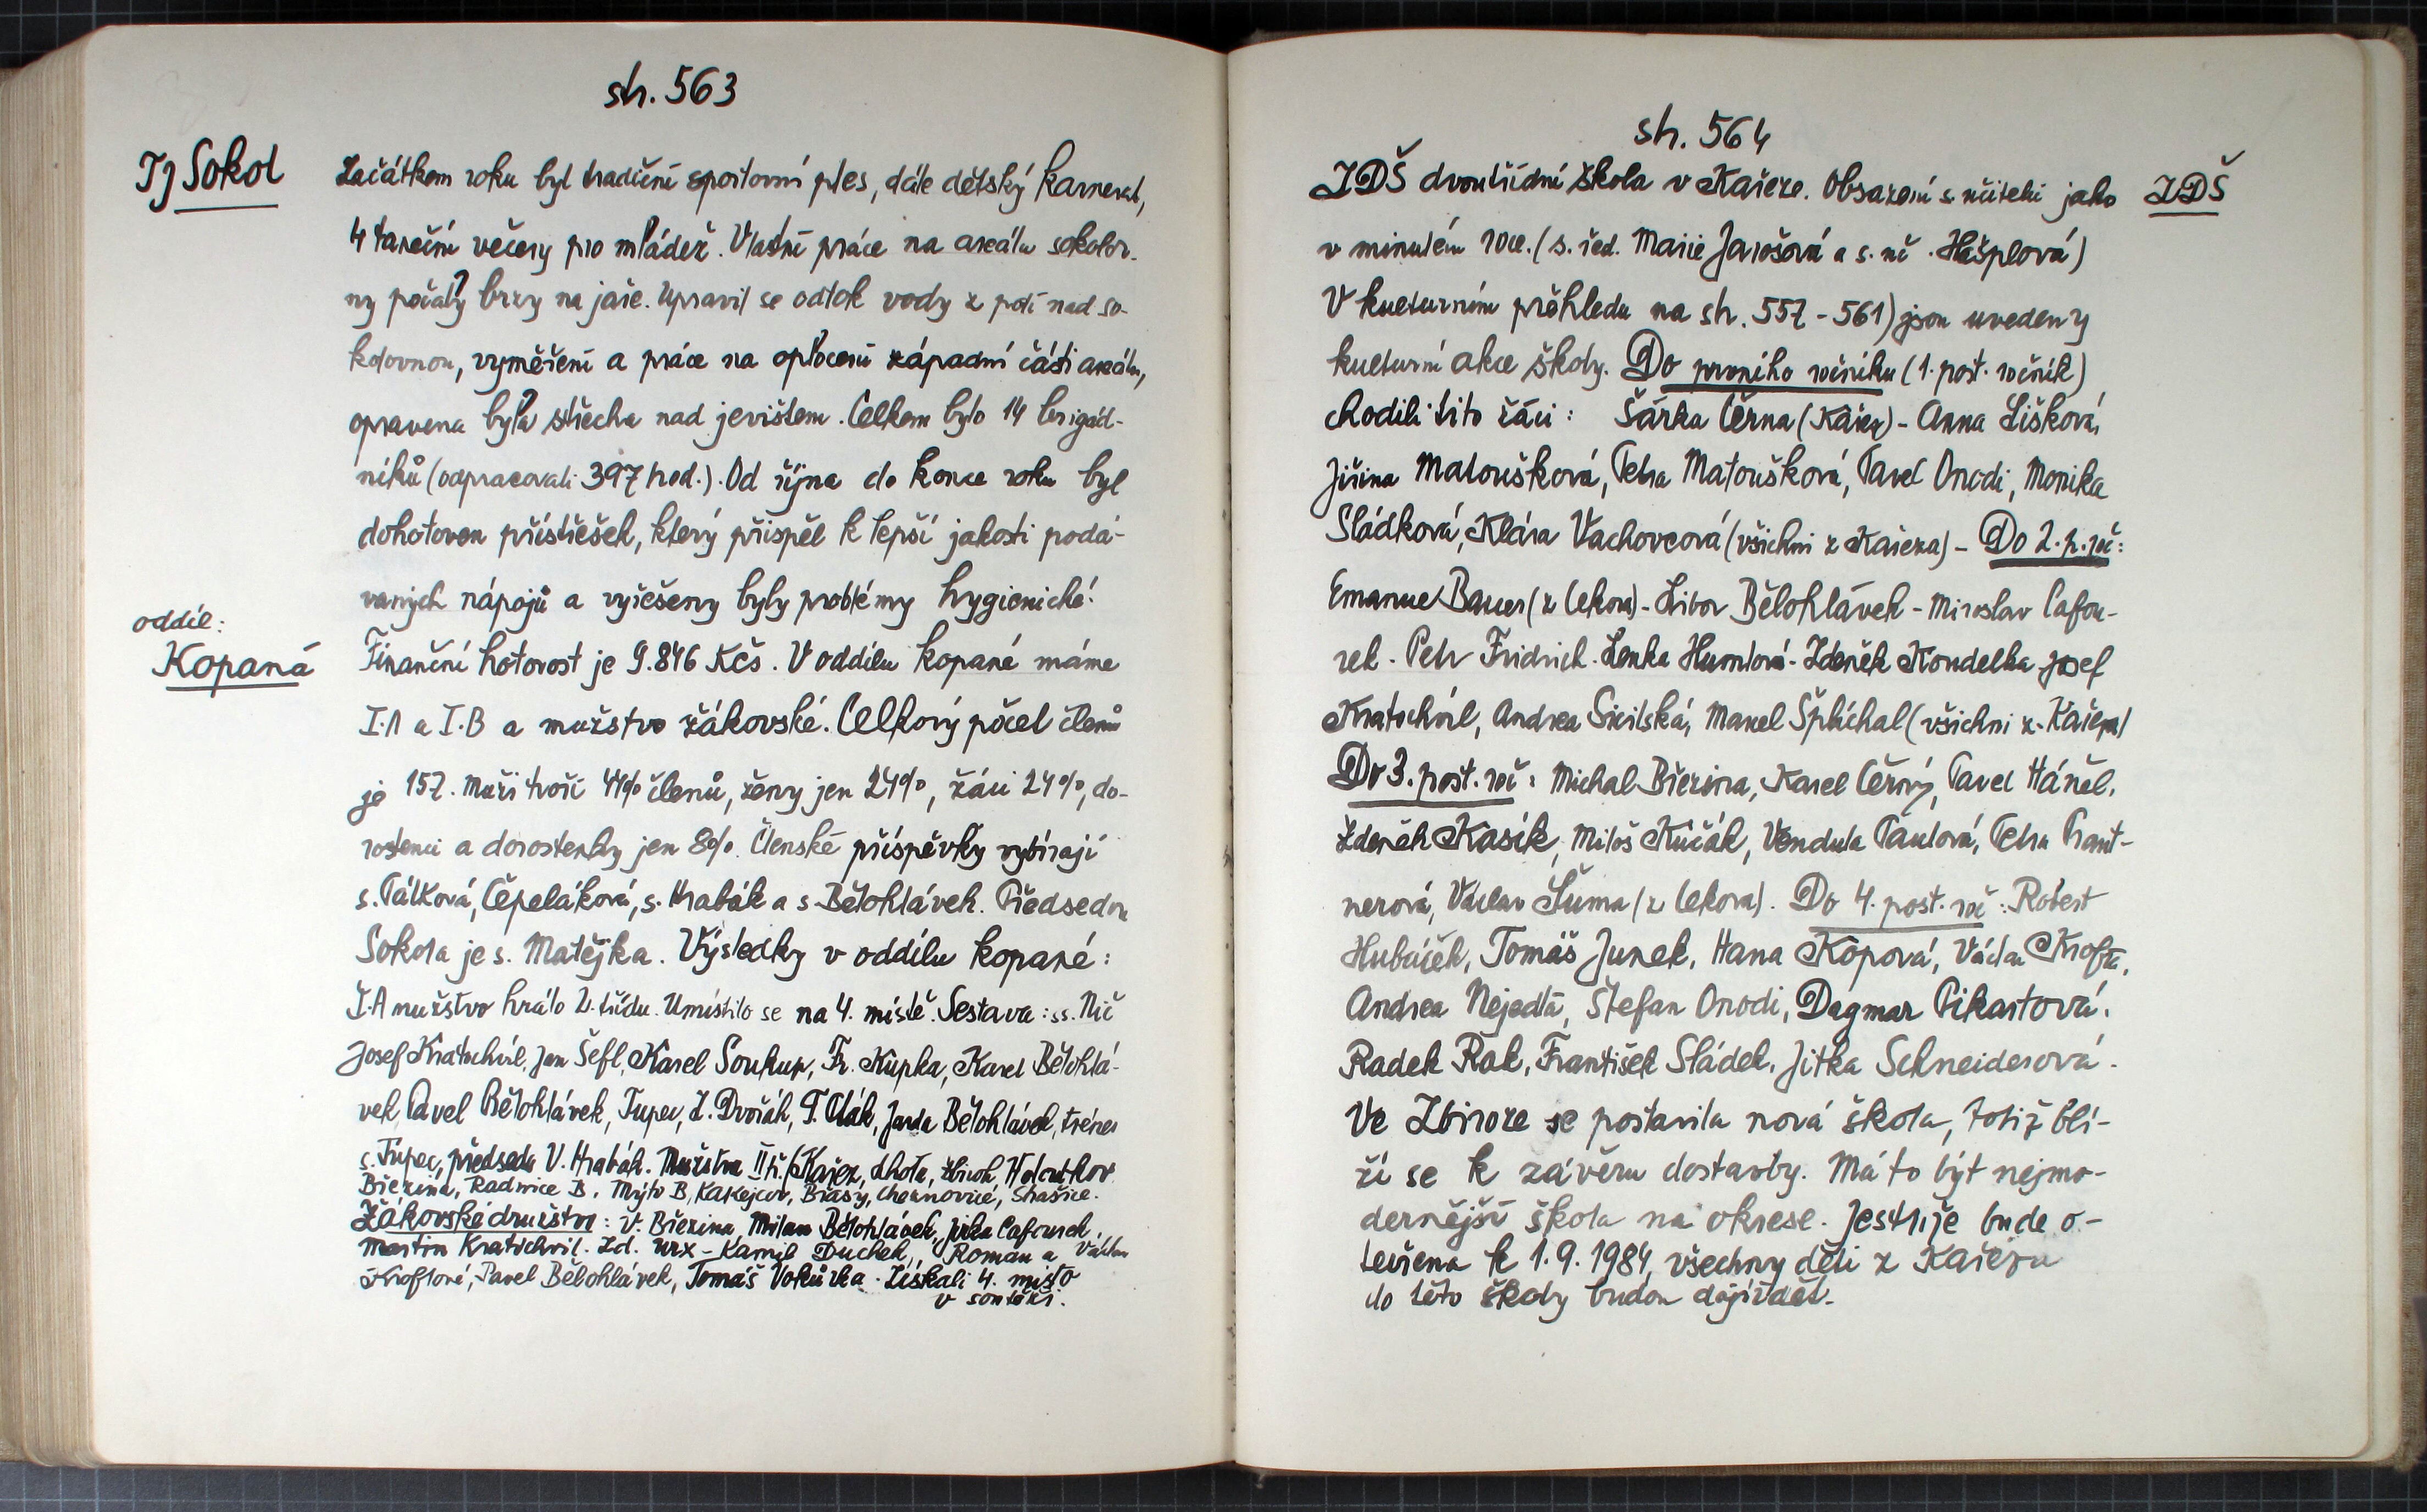 str. 563
Tj Sokol
Začátkem roku byl tradiční sportovní ples, dále dětský karneval,
4 taneční večery pro mládež. Vlastní práce na areálu sokolov-
ny počaly brzy na jaře. Upravil se odtok vody z polí nad so-
kolovnou, vyměření a práce na oplocení západní části areálu,
opravena byla střecha nad jevištem. Celkem bylo 14 brigád-
níků (odpracovali 397 hod.). Od října do konce roku byl
dohotoven přístřešek, který přispěl k lepší jakosti podá-
vaných nápojů a vyřešeny byly problémy hygienické.
oddíl:
Kopaná
Finanční hotovost je 9.846 Kčs. V oddílu kopané máme
I.A a I.B a mužstvo žákovské. Celkový počet členů
je 157. Muži tvoří 44% členů, ženy jen 24%, žáci 24%, do-
rostenci a dorostenky jen 8%. Členské příspěvky vybírají
s. Pátková, Čepeláková, s. Hrabák a s. Bělohlávek. Předsedou
Sokola je s. Matějka. Výsledky v oddílu kopané:
I.A mužstvo hrálo 2. třídu. Umístilo se na 4. místě. Sestava: ss. Nič
Josef Kratochvíl, Jan Šefl, Karel Soukup, Fr. Kůpka, Karel Bělohlá-
vek, Pavel Bělohlávek, Tupec, Z. Dvořák, Jarda Bělohlávek, tréner
s. Tupec, předseda V. Hrabák. Mužstva II tř. (Kařez, Lhota, Zbiroh, Holoubkov
Březina, Radnice B, Mýto B, Kakejcov, Břasy, Cheznovice, Strašice.
Žákovské družstvo: V. Březina, Milan Bělohlávek, Jirka Cafourek,
Martin Kratochvíl. Zd. Urx - Kamil Duchek, Roman a Václav
Kroftové, Pavel Bělohlávek, Tomáš Vokůrka. Získali 4. místo
v soutěži.
str. 564
ZDŠ
ZDŠ dvoutřídní škola v Kařeze. Obsazení s. učiteli jako
v minulém roce. (s. řed. Marie Jarošová a s. uč. Hešplová)
V kulturním přehledu na str. 557-561) jsou uvedeny
kulturní akce školy. Do prvního ročníku (1. post. ročník)
chodili tito žáci: Šárka Černa (Kařez) - Anna Lišková,
Jiřina Matoušková, Petra Matoušková, Pavel Onodi, Monika
Sládková, Klára Vachovcová (všichni z Kařeza) - Do 2. p. roč:
Emanuel Bauer (z Cekova) - Libor Bělohlávek - Miroslav Cafou-
rek. Petr Fridrich. Lenka Humlová - Zdeněk Koudelka Josef
Kratochvíl, Andrea Sicilská, Marcel Šplíchal (všichni z. Kařeza)
Do 3. post. roč: Michal Březina, Karel Černý, Pavel Háněl,
Zdeněk Kasík, Miloš Kůčák, Vendula Paulová, Petra Prant-
nerová, Václav Šuma (z Cekova). Do 4. post. roč: Robert
Hubáček, Tomáš Junek, Hana Kopová, Václav Krofta,
Andrea Nejedlá, Štefan Onodi, Dagmar Pikartová.
Radek Rak, František Sládek, Jitka Schneiderová.
Ve Zbiroze se postavila nová škola, totiž blí-
ží se k závěru dostavby. Má to být nejmo-
dernější škola na okrese. Jestliže bude o-
tevřena k 1.9.1984, všechny děti z Kařeza
do této školy budou dojíždět.